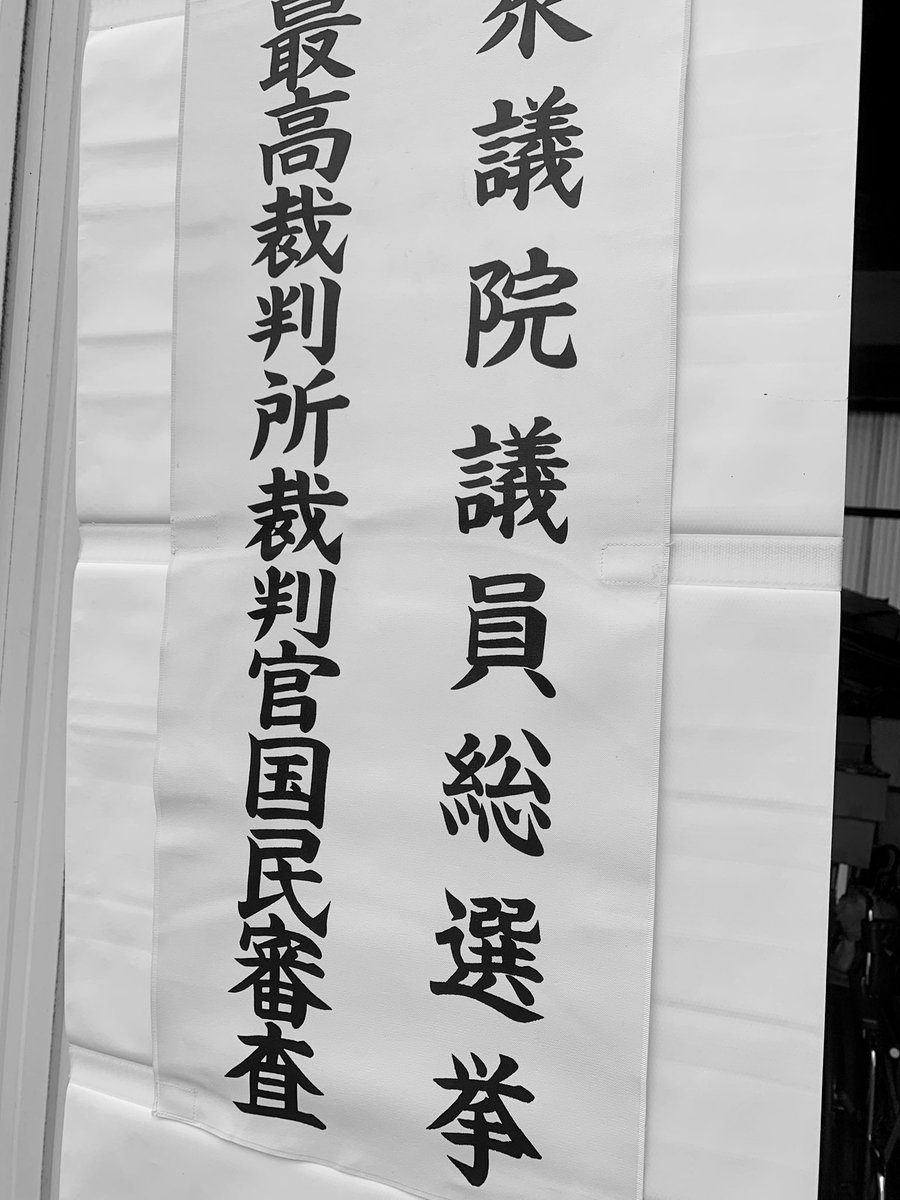 衆議院議員総選挙
最高裁判所裁判官国民審査